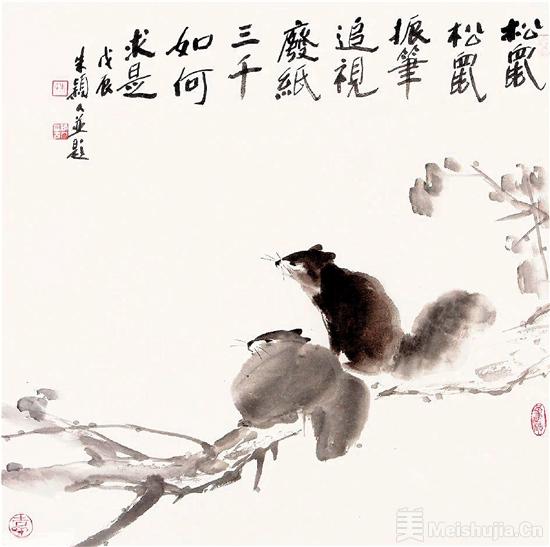 松鼠
松鼠
振筆
追視
廢紙
三千
如何
求是
戊辰
朱穎人並題
美 Meishujia.Cn